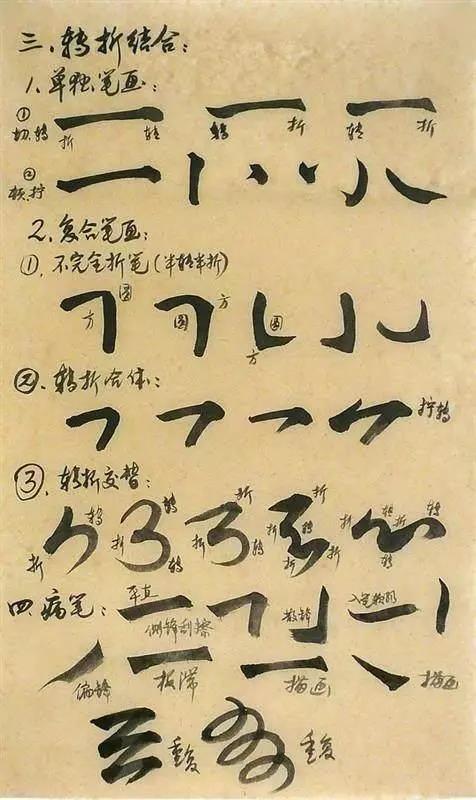 三、转折结合：
1.单独笔画：
①切、转 折 转 转 折 转 折
②顿、拧
2.复合笔画：
①.不完全折笔（半转半折）
方 圆 圆 方 圆 方
②.转折合体：
拧转
③.转折交替：
折 转 折 转 转 折 折 转 折 折 转 折 折 转 折 转 转
四.病笔：
平直 侧锋刮擦 散锋
偏锋 板滞 描画 描画
重复 重复